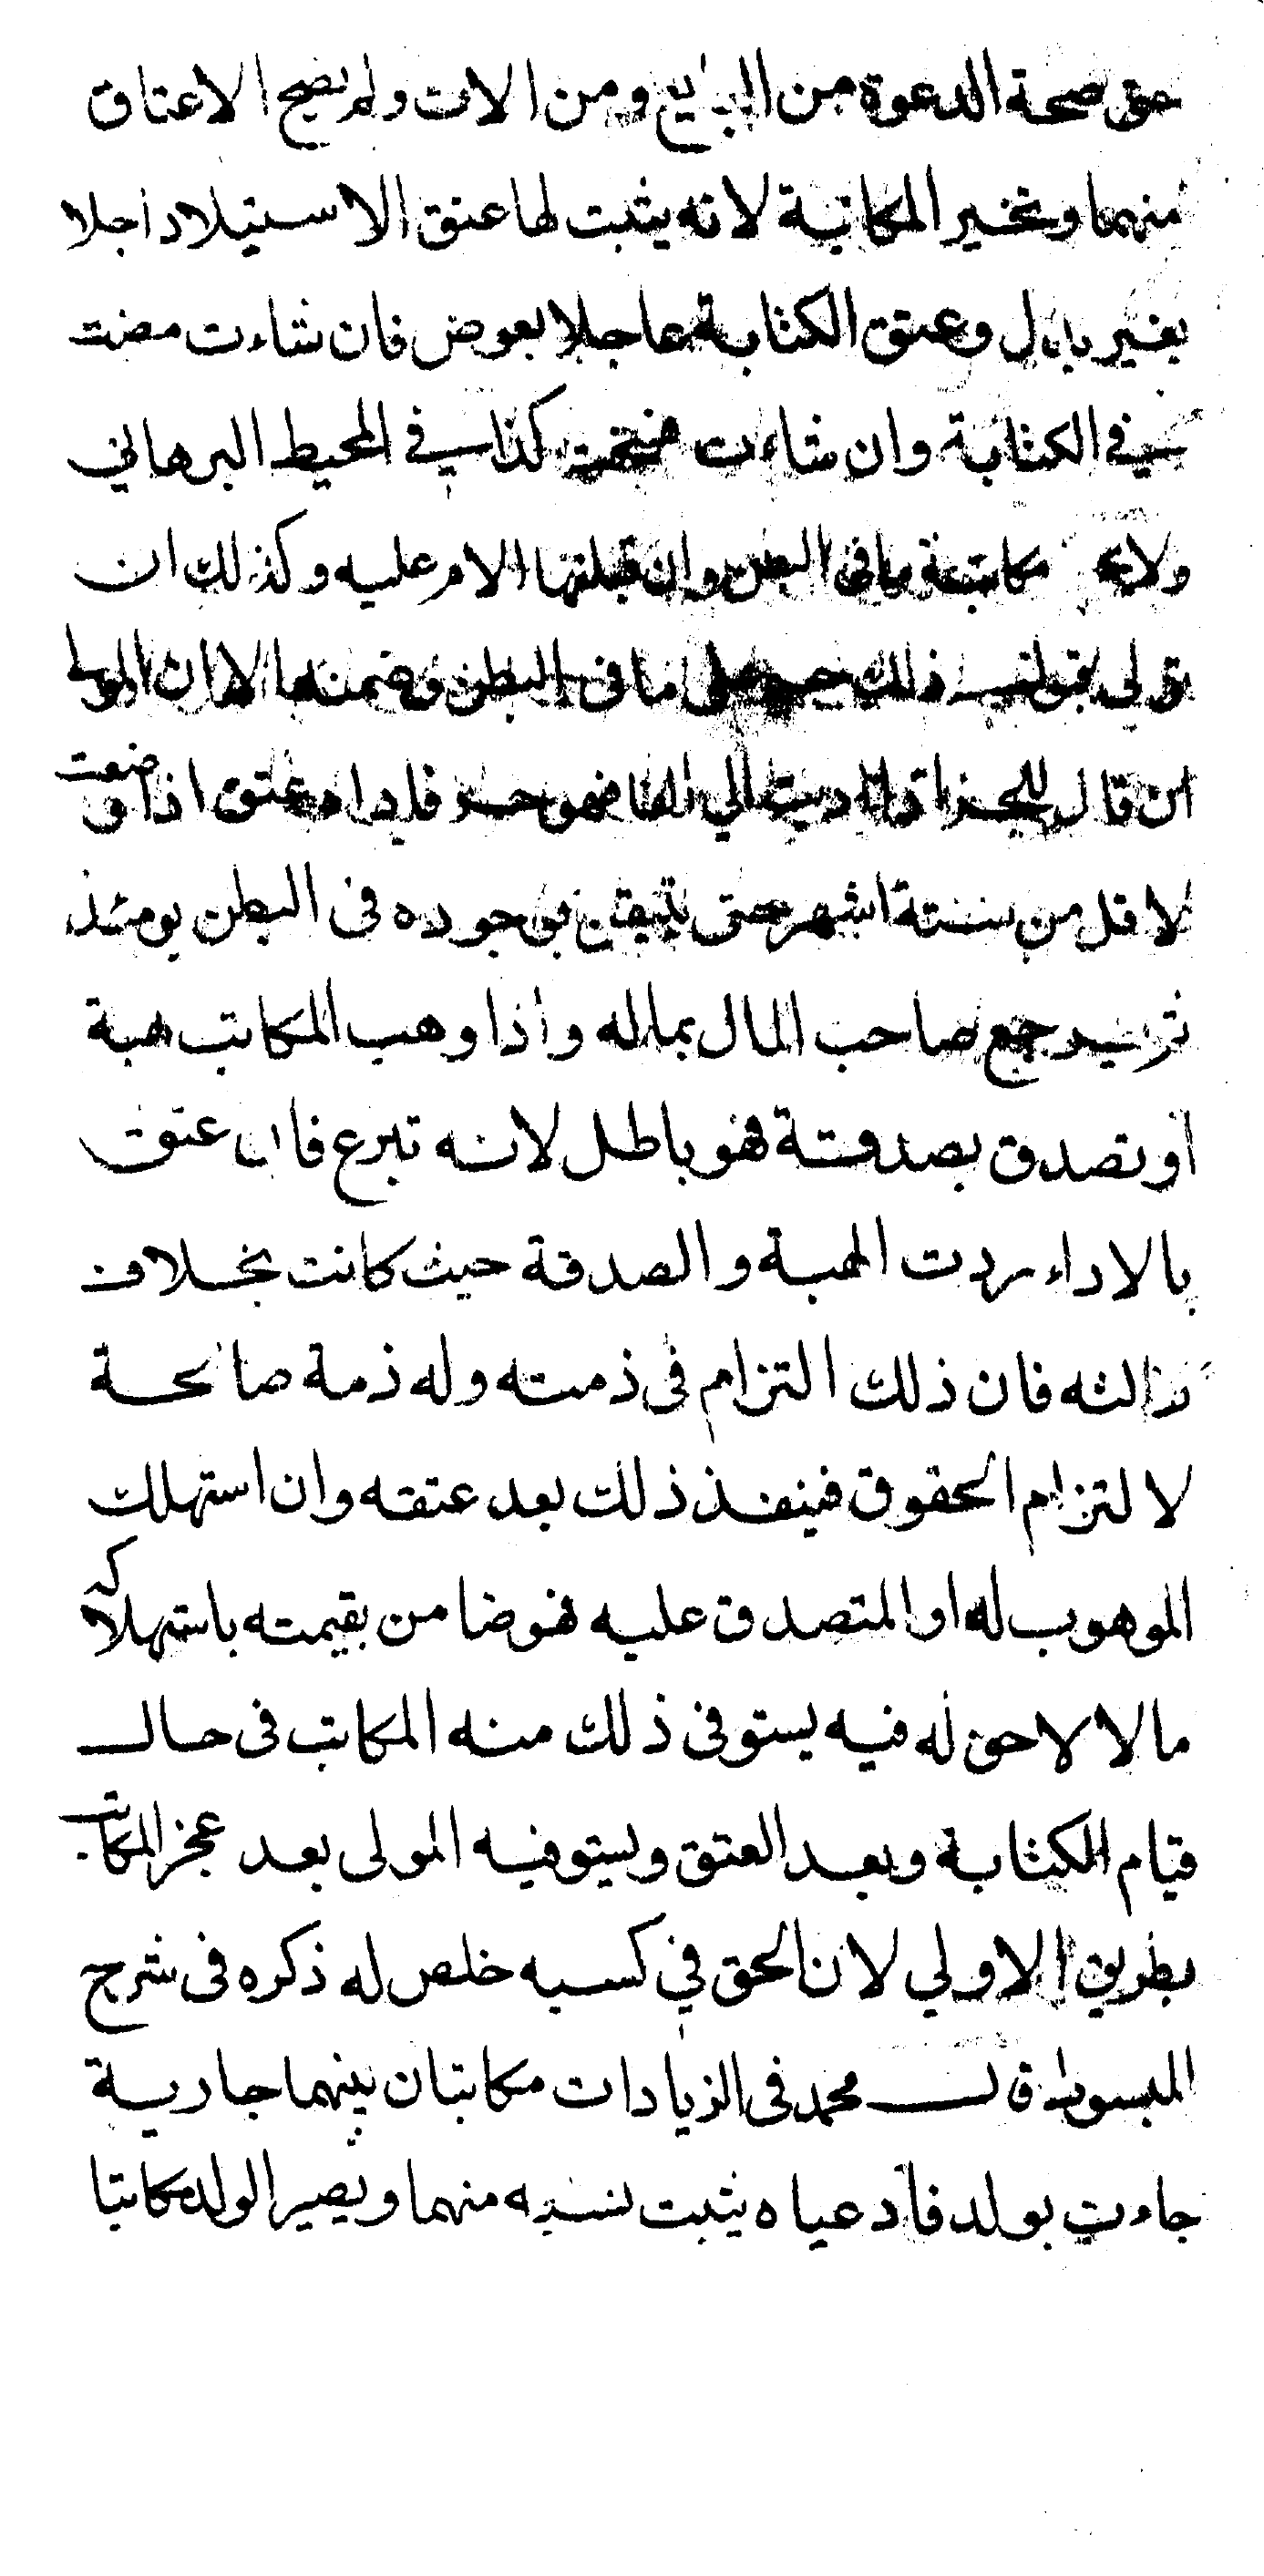 حق صحة الدعوة من البايع ومن الاب ولم يصح الاعتاق
منهما وتخير المكاتبة لانه يثبت لها عتق الاستيلاد اجلا
بغير بدل وعتق الكتابة عاجلا بعوض فان شاءت مضت
في الكتابة وان شاءت كذا في المحيط البرهاني
مكاتبة ما في البطن وان قبلتها الام عليه وكذلك ان
ذلك على ما في البطن وضمنه الا ان المولى
ان قال للحر اذا اديت الي الفا فهو حر فاداه عتق اذا وضعت
لاقل من ستة اشهر حتى تتيقن بوجوده في البطن يومئذ
ثم يرجع صاحب المال بماله واذا وهب المكاتب هبة
او تصدق بصدقة فهو باطل لانه تبرع فان عتق
بالاداء ردت الهبة والصدقة حيث كانت بخلاف
فان ذلك التزام في ذمته وله ذمة صالحة
لالتزام الحقوق فينفذ ذلك بعد عتقه وان استهلك
الموهوب له او المتصدق عليه فهو ضامن بقيمته باستهلاكه
مالا لا حق له فيه يستوفى ذلك منه المكاتب فى حال
قيام الكتابة وبعد العتق ويستوفيه المولى بعد عجز المكاتب
بطريق الاولي لان الحق في كسبه خلص له ذكره فى شرح
المبسوط قال محمد فى الزيادات مكاتبان بينهما جارية
جاءت بولد فادعياه يثبت نسبه منهما ويصير الولد مكاتبا